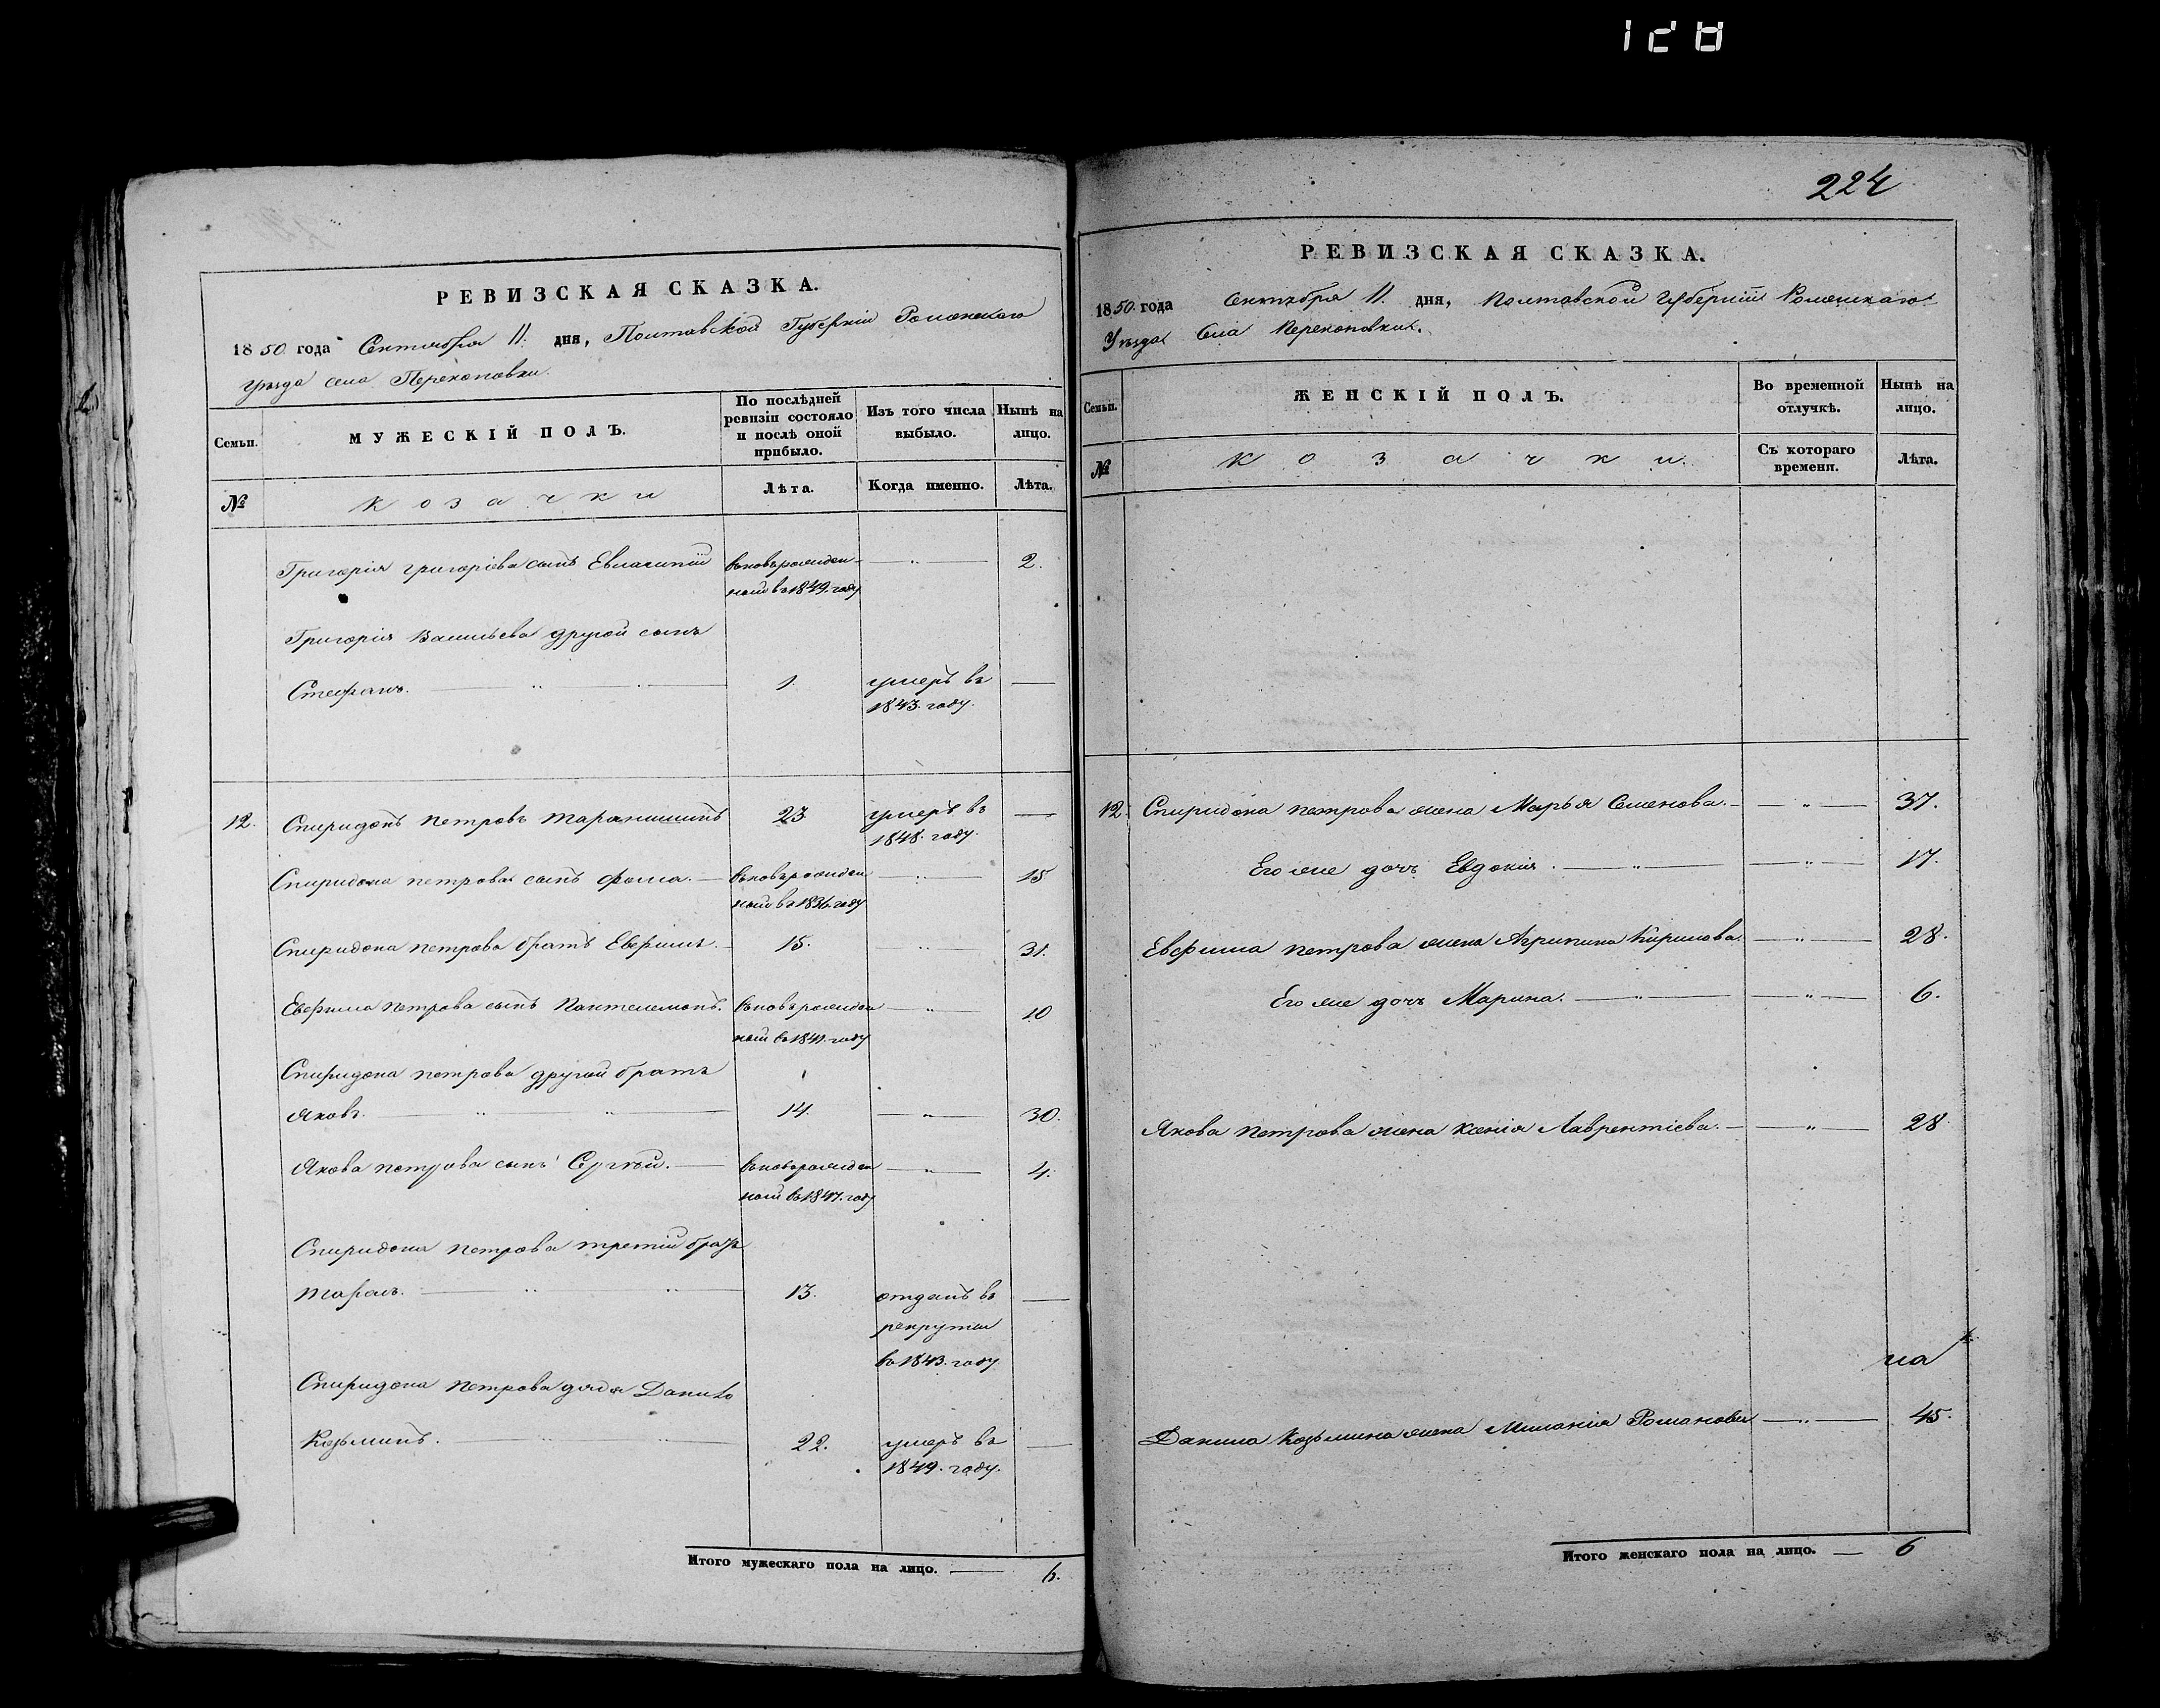 128
РЕВИЗСКАЯ СКАЗКА.
1850 года Сентября 11. дня, Полтавской Губерніи Роменскаго
уѣзда села Перекоповки.
Семьи.
МУЖЕСКІЙ ПОЛЪ.
По послѣдней ревизіи состояло и послѣ оной прибыло.
Изъ того числа выбыло.
Нынѣ на лицо.
№
Козачки
Лѣта.
Когда именно.
Лѣта.
Григорія григоріева сынъ Евлампій вновьрожден- — „ — 2.
ный въ 1849. году
Григорія Васильева другой сынъ
Стефанъ. — „ — 1. умеръ въ —
1843. году.
12. Спиридонъ петровъ 23 умеръ въ —
1848. году.
Спиридона петрова сынъ Фома. — вновьрожден — „ — 15
ный въ 1836 году
Спиридона петрова братъ Евфимъ. — 15. — „ — 31.
Евфима петрова сынъ Пантелемонъ. вновьрожден — „ — 10
ный въ 1841. году
Спиридона петрова другой братъ
Яковъ. — „ „ — 14. — „ — 30.
Якова петрова сынъ Сергѣй. — вновьрожден — „ — 4.
ный въ 1847. году
Спиридона петрова третій братъ
Тарасъ. — „ „ — 13. отданъ въ —
рекруты
въ 1843. году
Спиридона петрова дядя Данило
Козьминъ. „ — 22. умеръ въ —
1849. году.
Итого мужескаго пола на лицо. — 6.
224
РЕВИЗСКАЯ СКАЗКА.
1850. года Сентября 11. дня, Полтавской Губерніи Роменскаго
Уѣзда Села Перекоповки.
Семьи.
ЖЕНСКІЙ ПОЛЪ.
Во временной отлучкѣ.
Нынѣ на лицо.
№
Козачки.
Съ котораго времени.
Лѣта.
12. Спиридона петрова жена Марья Семенова. — — „ — 37.
Его же дочь Евдокія. — „ — — „ — 17.
Евфима петрова жена Агрипина Кирилова. — „ — 28.
Его же дочь Марина. — „ — — „ — 6.
Якова петрова жена Ксенія Лаврентіева. — — „ — 28.
на
Данила Козьмина жена Миланія Романова — „ — 45.
Итого женскаго пола на лицо. — 6